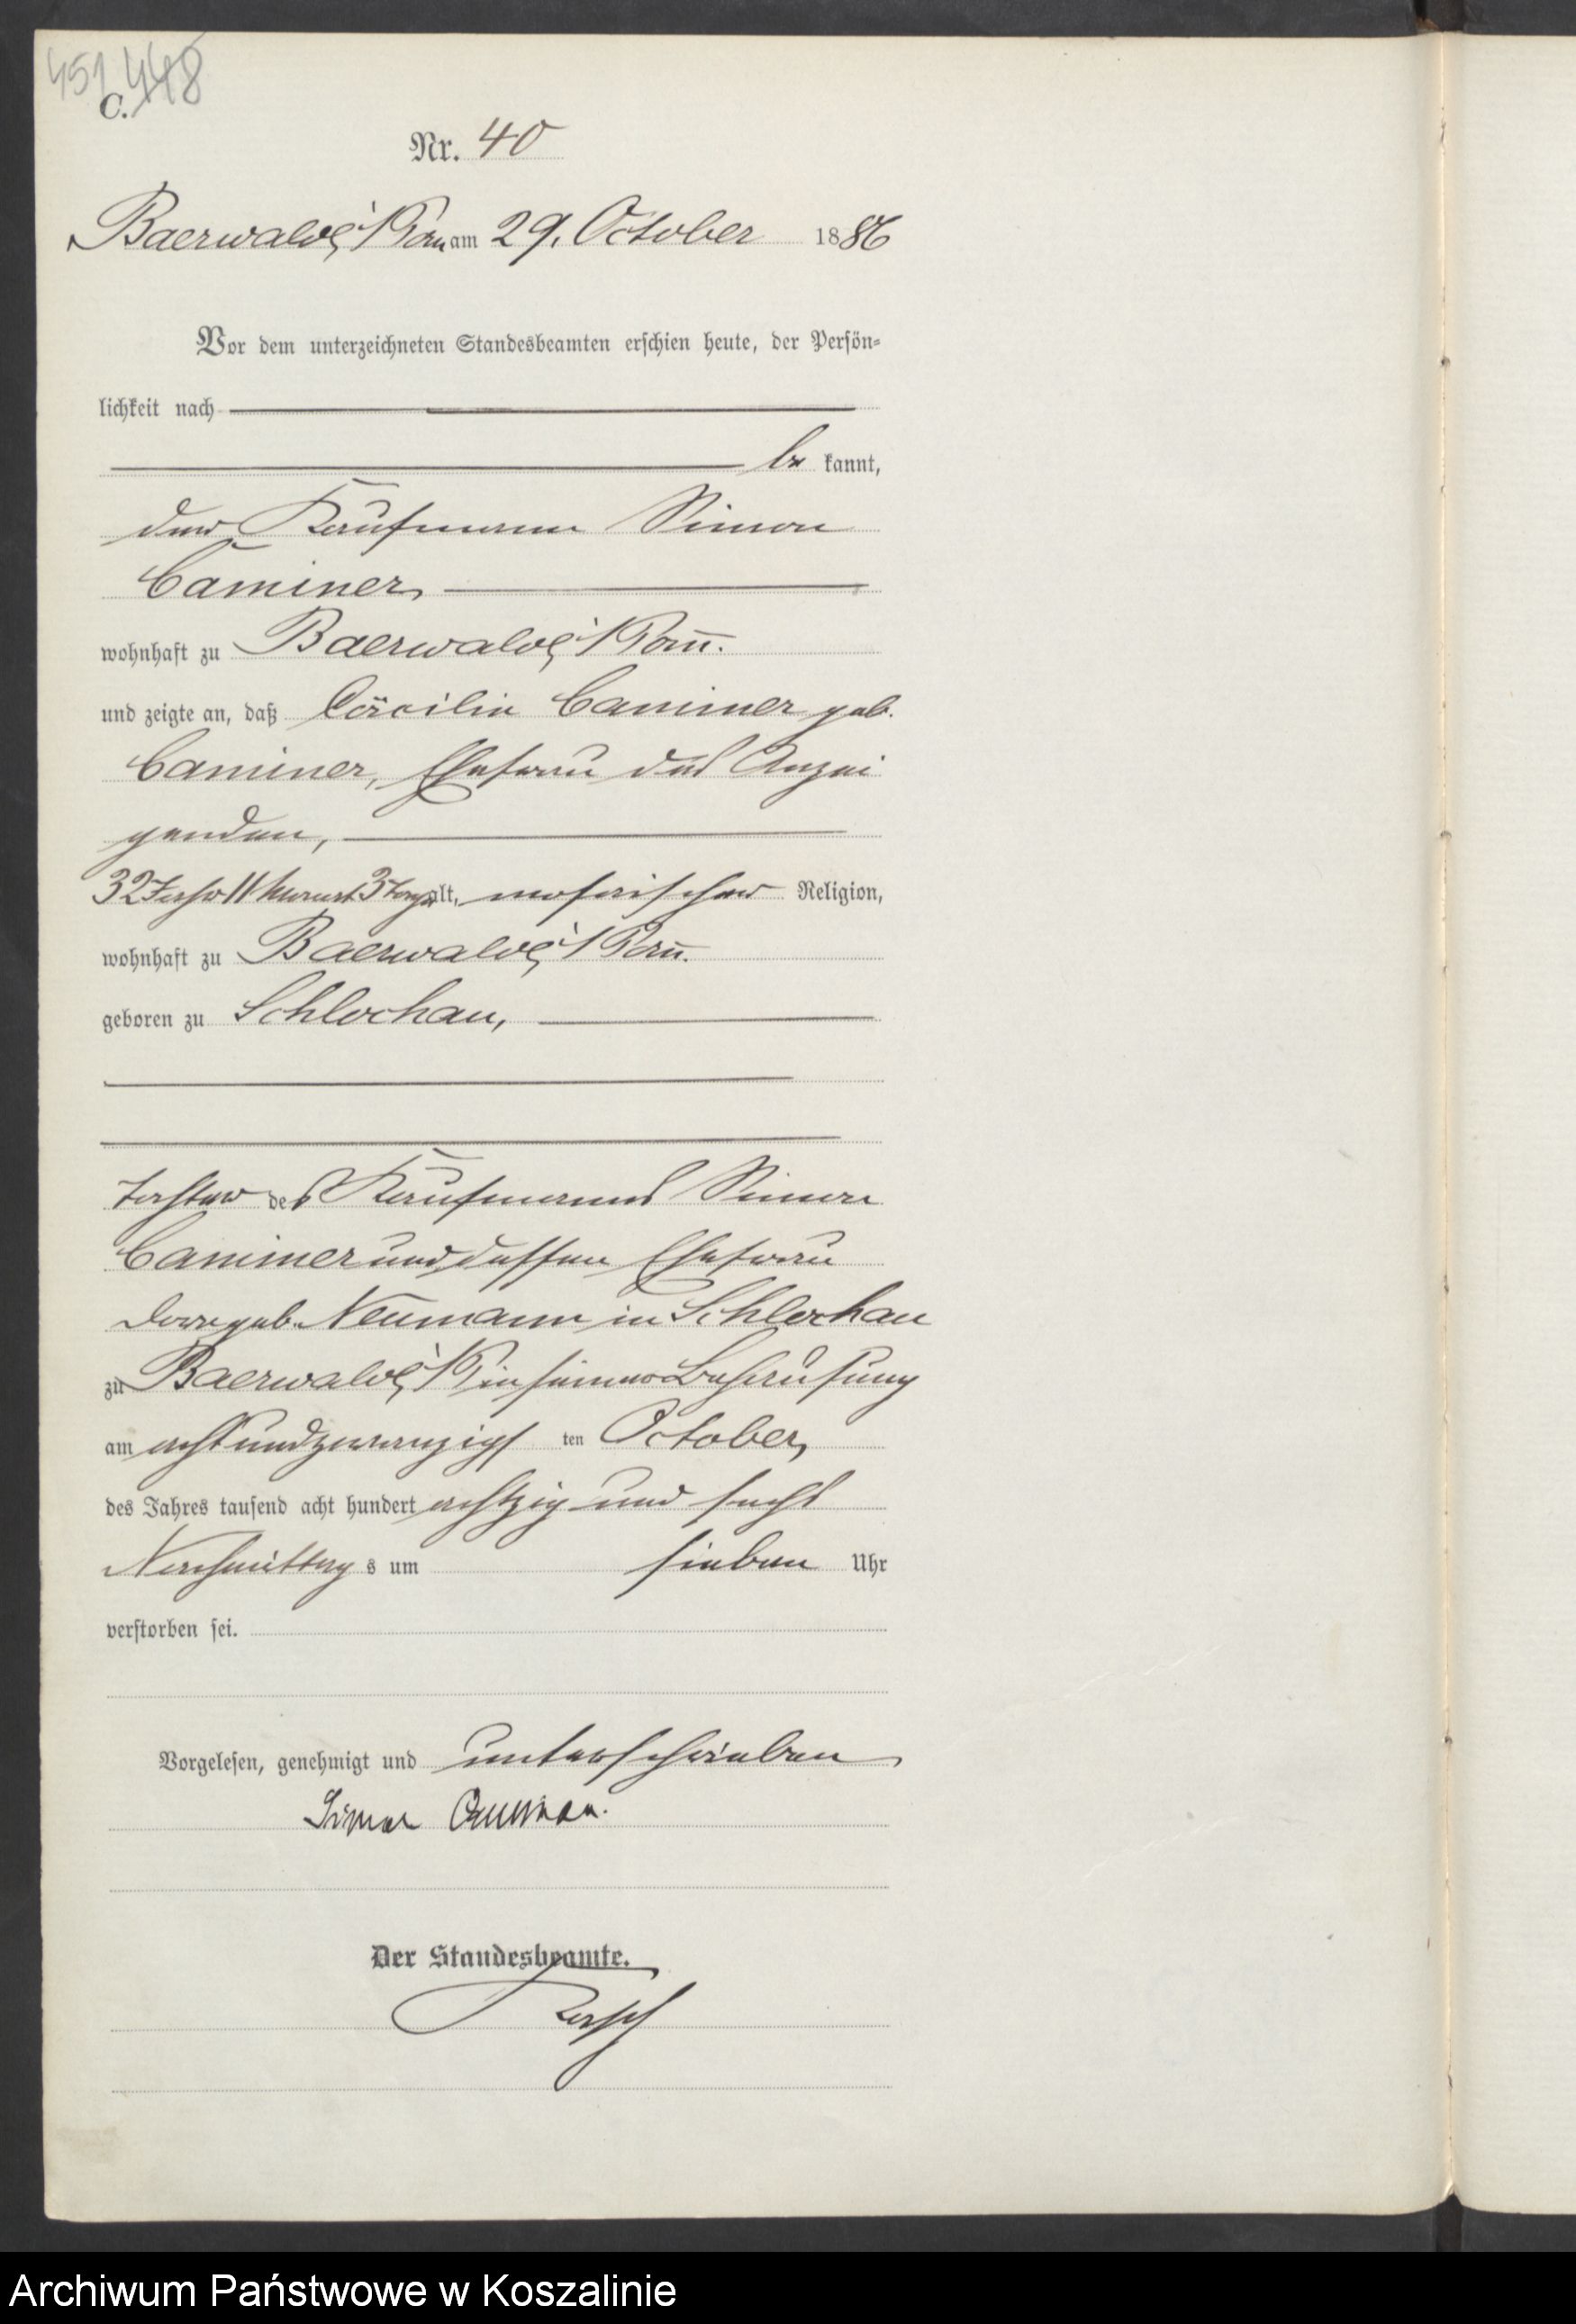 451 448
C.
Nr. 40
Baerwalde i/Pom am 29. October 1886
Vor dem unterzeichneten Standesbeamten erschien heute, der Persön-
lichkeit nach
be kannt,
der Kaufmann Simon
Caminer,
wohnhaft zu Baerwalde i/Pom.
und zeigte an, daß Cäcilie Caminer geb.
Caminer, Ehefrau des Anzei
genden,
32 Jahr 11 Monat 3 Tage alt, mosaischer Religion,
wohnhaft zu Baerwalde i/Pom.
geboren zu Schlochau,
Tochter des Kaufmanns Simon
Caminer und dessen Ehefrau
geb. Neumann in Schlochau
zu Baerwalde i/P in seiner Behausung
am achtundzwanzigs ten October,
des Jahres tausend acht hundert achtzig und sechs
Nachmittag s um sieben Uhr
verstorben sei.
Vorgelesen, genehmigt und unterschrieben
Simon Caminer.
Der Standesbeamte.
Archiwum Państwowe w Koszalinie